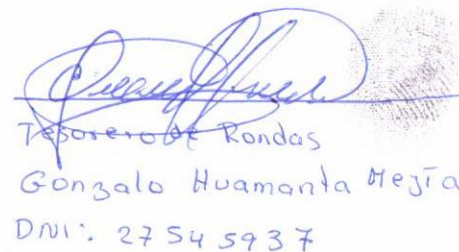 Tesorero de Rondas
Gonzalo Huamanta Mejía
DNI: 27545937